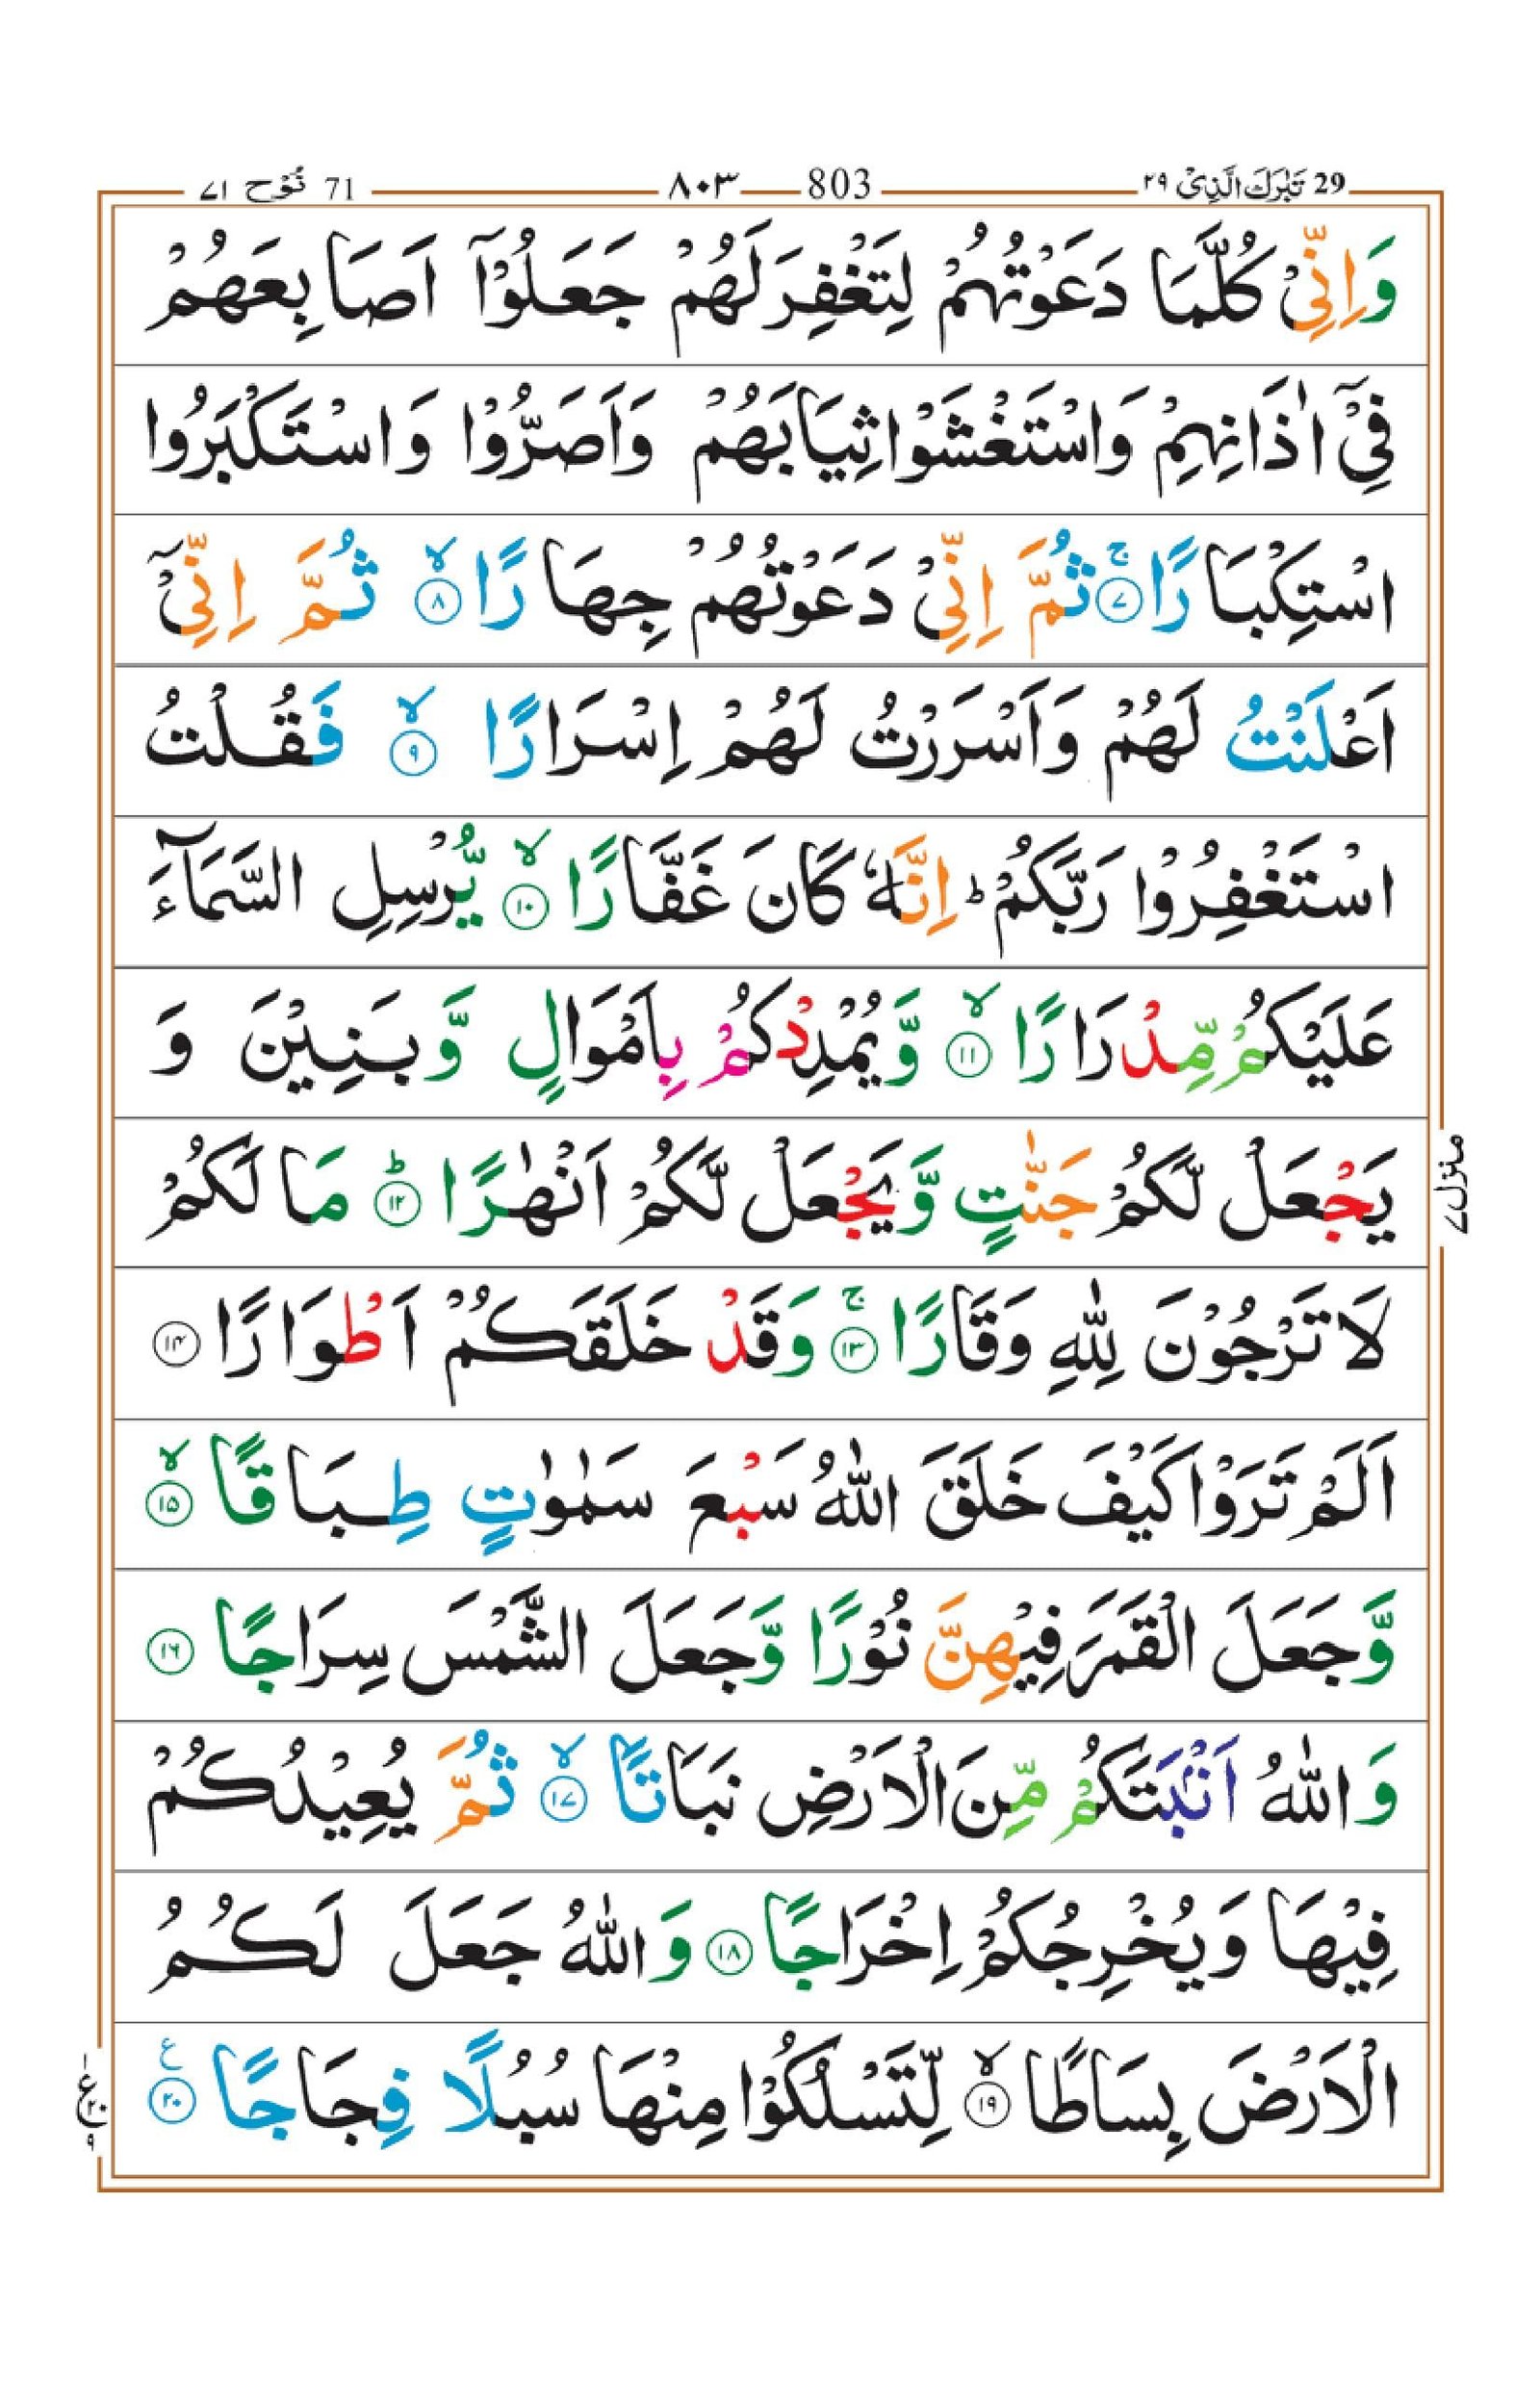 29 تَبٰرَكَ الَّذِىْ ٢٩ 803 ٨٠٣ 71 نُوْح ٧١
وَاِنِّىْ كُلَّمَا دَعَوْتُهُمْ لِتَغْفِرَ لَهُمْ جَعَلُوْۤا اَصَابِعَهُمْ
فِىْۤ اٰذَانِهِمْ وَاسْتَغْشَوْا ثِيَابَهُمْ وَاَصَرُّوْا وَاسْتَكْبَرُوا
اسْتِكْبَارًا ۚ‏ ﴿۷﴾ ثُمَّ اِنِّىْ دَعَوْتُهُمْ جِهَارًا ۙ‏ ﴿۸﴾ ثُمَّ اِنِّىْۤ
اَعْلَنْتُ لَهُمْ وَاَسْرَرْتُ لَهُمْ اِسْرَارًا ۙ‏ ﴿۹﴾ فَقُلْتُ
اسْتَغْفِرُوْا رَبَّكُمْ ؕ اِنَّهٗ كَانَ غَفَّارًا ۙ‏ ﴿۱۰﴾ يُّرْسِلِ السَّمَآءَ
عَلَيْكُمْ مِّدْرَارًا ۙ‏ ﴿۱۱﴾ وَّيُمْدِدْكُمْ بِاَمْوَالٍ وَّبَنِيْنَ وَ
يَجْعَلْ لَّكُمْ جَنّٰتٍ وَّيَجْعَلْ لَّكُمْ اَنْهٰرًا ؕ‏ ﴿۱۲﴾ مَا لَكُمْ
لَا تَرْجُوْنَ لِلّٰهِ وَقَارًا ۚ‏ ﴿۱۳﴾ وَقَدْ خَلَقَكُمْ اَطْوَارًا ﴿۱۴﴾
اَلَمْ تَرَوْا كَيْفَ خَلَقَ اللّٰهُ سَبْعَ سَمٰوٰتٍ طِبَاقًا ۙ‏ ﴿۱۵﴾
وَّجَعَلَ الْقَمَرَ فِيْهِنَّ نُوْرًا وَّجَعَلَ الشَّمْسَ سِرَاجًا ﴿۱۶﴾
وَاللّٰهُ اَنْۢبَتَكُمْ مِّنَ الْاَرْضِ نَبَاتًا ۙ‏ ﴿۱۷﴾ ثُمَّ يُعِيْدُكُمْ
فِيْهَا وَيُخْرِجُكُمْ اِخْرَاجًا ﴿۱۸﴾ وَاللّٰهُ جَعَلَ لَكُمُ
الْاَرْضَ بِسَاطًا ۙ‏ ﴿۱۹﴾ لِّتَسْلُكُوْا مِنْهَا سُبُلًا فِجَاجًا ﴿۲۰﴾ ع
منزل ٧
١
ع ٢٠
٩